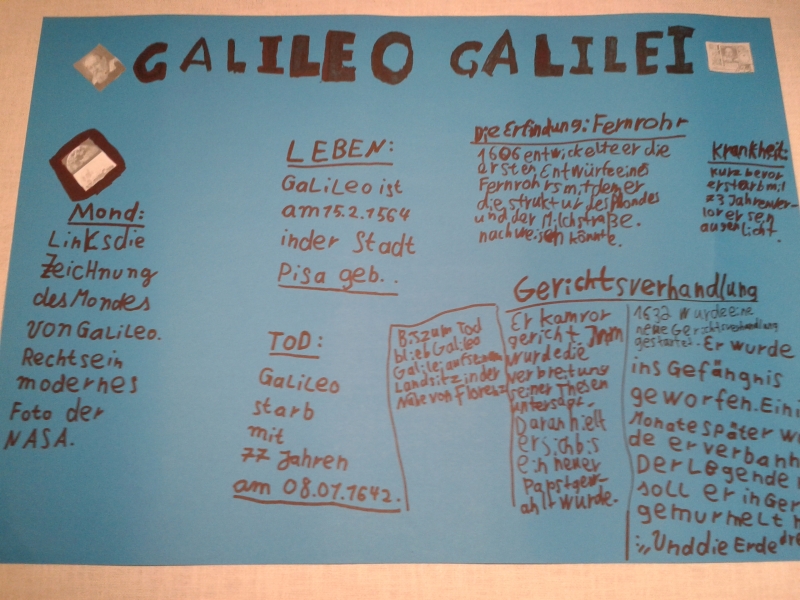 GALILEO GALILEI
Mond:
Links die
Zeichnung
des Mondes
von Galileo.
Rechts ein
modernes
Foto der
NASA.
LEBEN:
Galileo ist
am 15.2.1564
in der Stadt
Pisa geb..
TOD:
Galileo
starb
mit
77 Jahren
am 08.01.1642.
Die Erfindung: Fernrohr
1606 entwickelte er die
ersten Entwürfe eines
Fernrohrs mit dem er
die struktur des Mondes
und der Milchstraße.
nachweisen könnte.
Krankheit:
kurz bevor
er starb mit
73 Jahren ver-
lor er sen
augenlicht.
Gerichtsverhandlung
Bis zum Tod
blieb Galileo
Galilei auf
Landsitz in der
Nähe von Florenz
Er kam vor
gericht Ihm
wurde die
verbreitung
seiner Thesen
untersagt.
Daran hielt
er sich bis
ein neuer
Papst gew-
ählt wurde.
1632 wurde eine
neue Gerichtsverhandlung
gestartet. Er wurde
ins Gefängnis
geworfen. Eini
Monate später wu
de er verbann
Der Legende n
soll er in Ger
gemurmelt h
:„Und die Erde dre